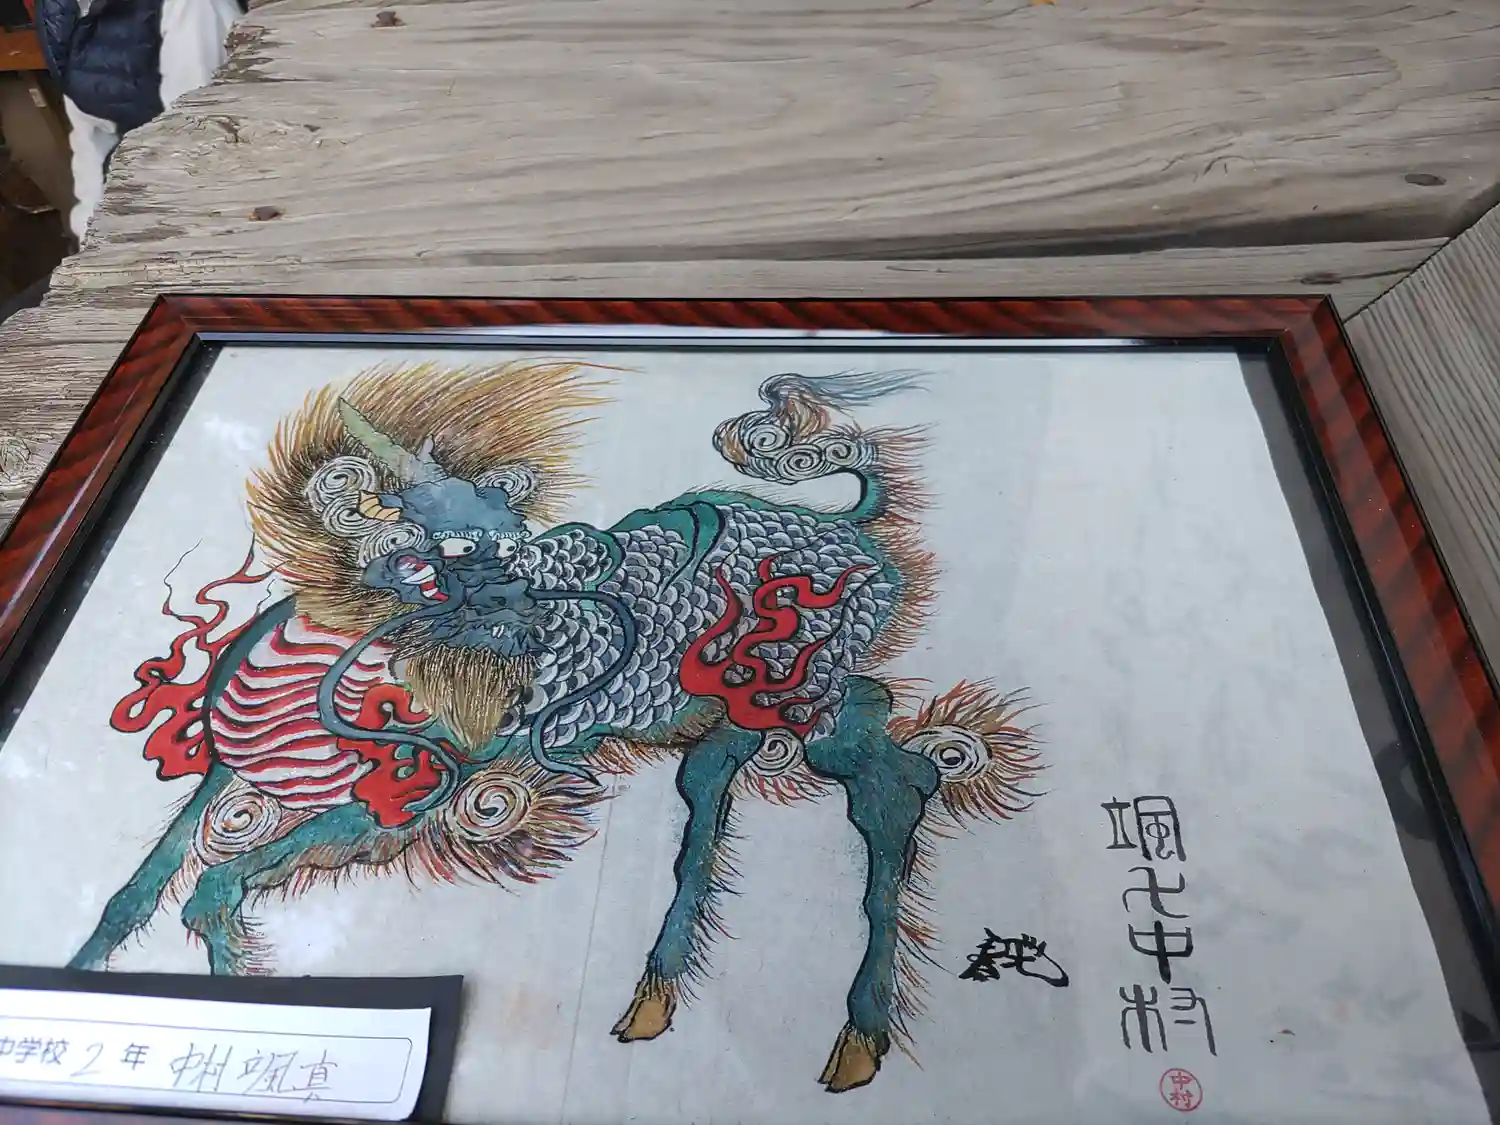 颯
中
村
中村
中学校 2 年 中村 颯真